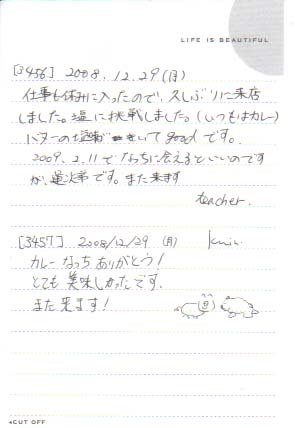 LIFE IS BEAUTIFUL
[3456] 2008.12.29(月)
仕事も休みに入ったので、久しぶりに来店
しました。塩に挑戦しました。(いつもはカレー)
バターの塩が きいて goodです。
2009.2.11でなっちに会えるといいのです
が、運次第です。また来ます
teacher.
[3457] 2008/12/29 (月)
カレーなっちありがとう!
とても美味しかったです.
また来ます!
◂CUT OFF